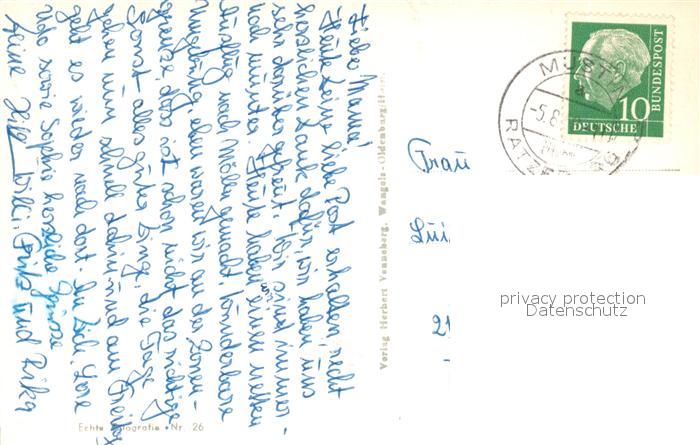 Liebe Mama!
Heute Deine liebe Post erhalten, recht
herzlichen Dank dafür wir haben uns
sehr darüber gefreut. Wir sind immer
noch munter. Heute haben wir einen netten
Ausflug nach Mölln gemacht, wunderbare
Umgebung, eben waren wir an der Zonen-
grenze, dass ist schon nicht das richtige
Sonst alles guter Ding, die Tage
gehen nun schnell dahin und am Freitag
geht es wieder nach dort. Dir, Lore
Udo sowie Sophie herzliche Grüsse
Deine Willi, Fritz und Rika
Verlag Herbert Venneberg, Wangels-Oldenburg/Holst.
Echte Fotografie • Nr. 26
Frau
Lui
21
MUSTIN
a
-5.8
RATZEB
10
DEUTSCHE
BUNDESPOST
privacy protection
Datenschutz